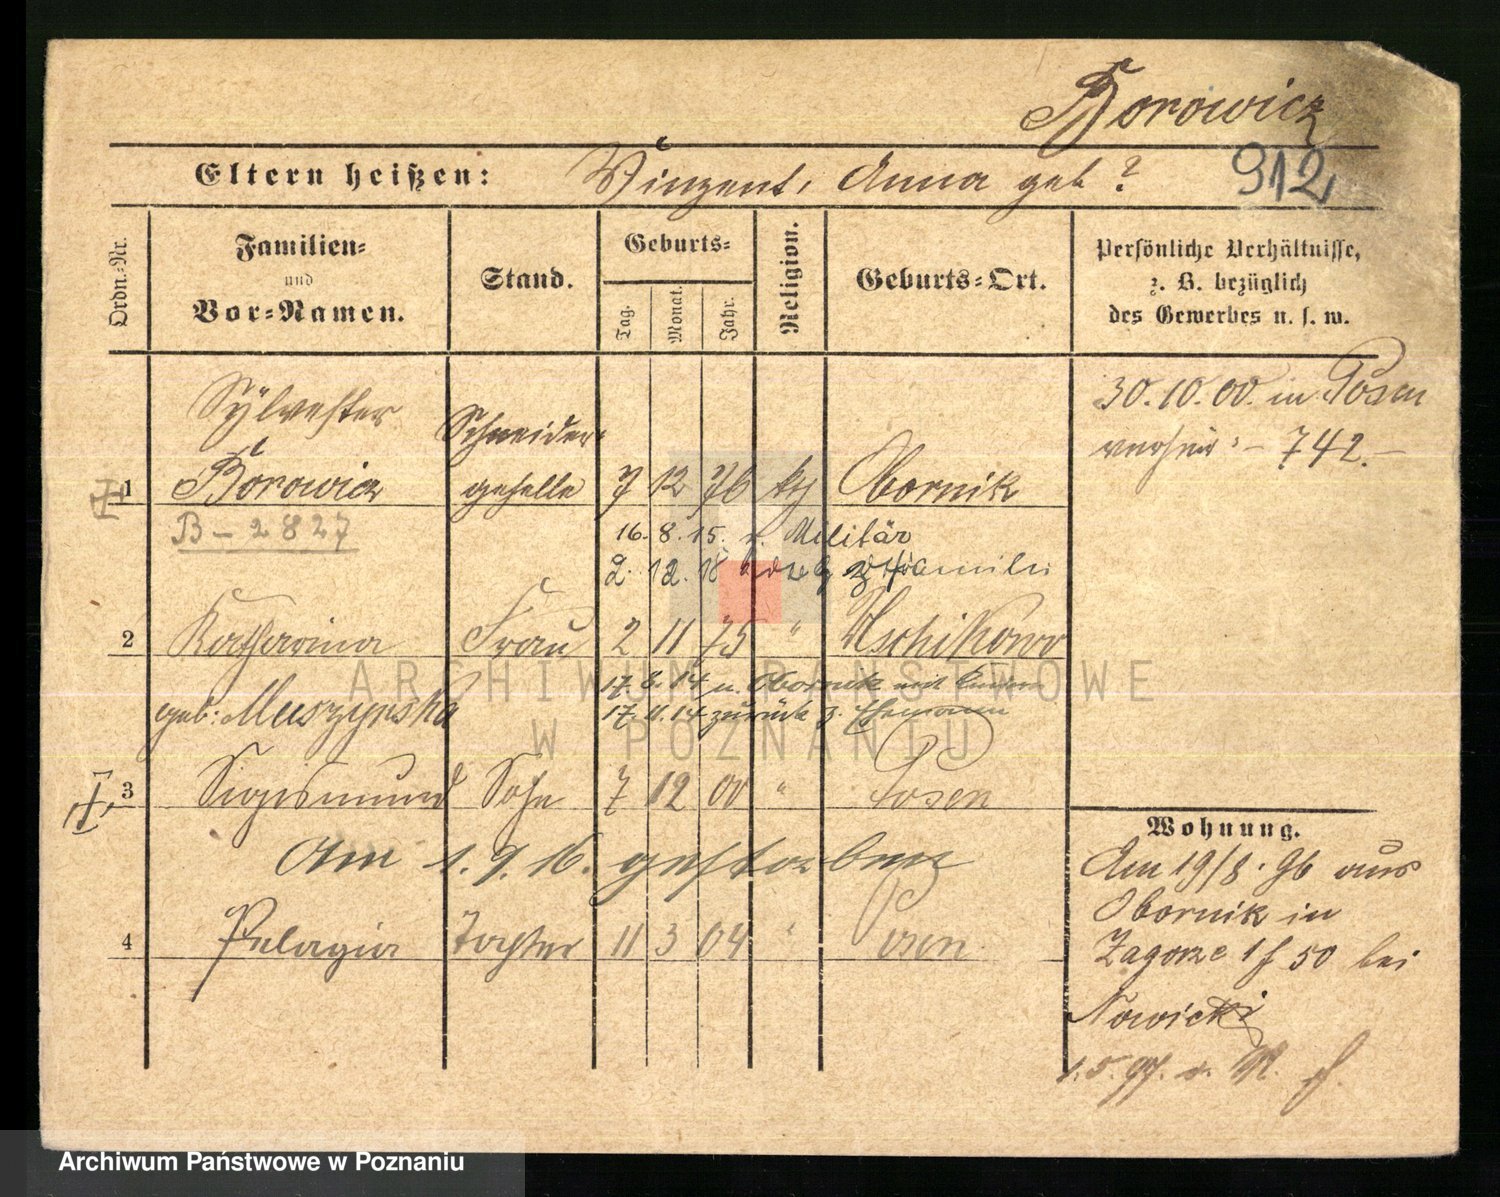 Borowicz
912
Eltern heißen: Winzent, Anna geb ?
Ordn.-Nr.
Familien-
und
Vor-Namen.
Stand.
Geburts-
Tag.
Monat.
Jahr.
Religion.
Geburts-Ort.
Persönliche Verhältnisse,
z. B. bezüglich
des Gewerbes u. s. w.
30.10.00. in Posen
742.
Sylvester
Schneider-
1 Borowicz geselle 7 12 76 kth Obornik
B – 2827
16. 8. 15. z. Militär
2. 12. 18
2 Katharina Frau 2 11 75 "
geb: Muszynska
17. 6. 14 n. Obornik mit
17. 11. 14 zurück z. Ehemann
3 Sigismund Sohn 7 12 00 " Posen
Am 1. 9. 16. gestorben
4 Pelagia Tochter 11 3 04 " Posen
Wohnung.
Am 19/8. 96 aus
Obornik in
Zagorze 1 f 50 bei
Nowicki
1. 5. 97.
ARCHIWUM PAŃSTWOWE
W POZNANIU
Archiwum Państwowe w Poznaniu